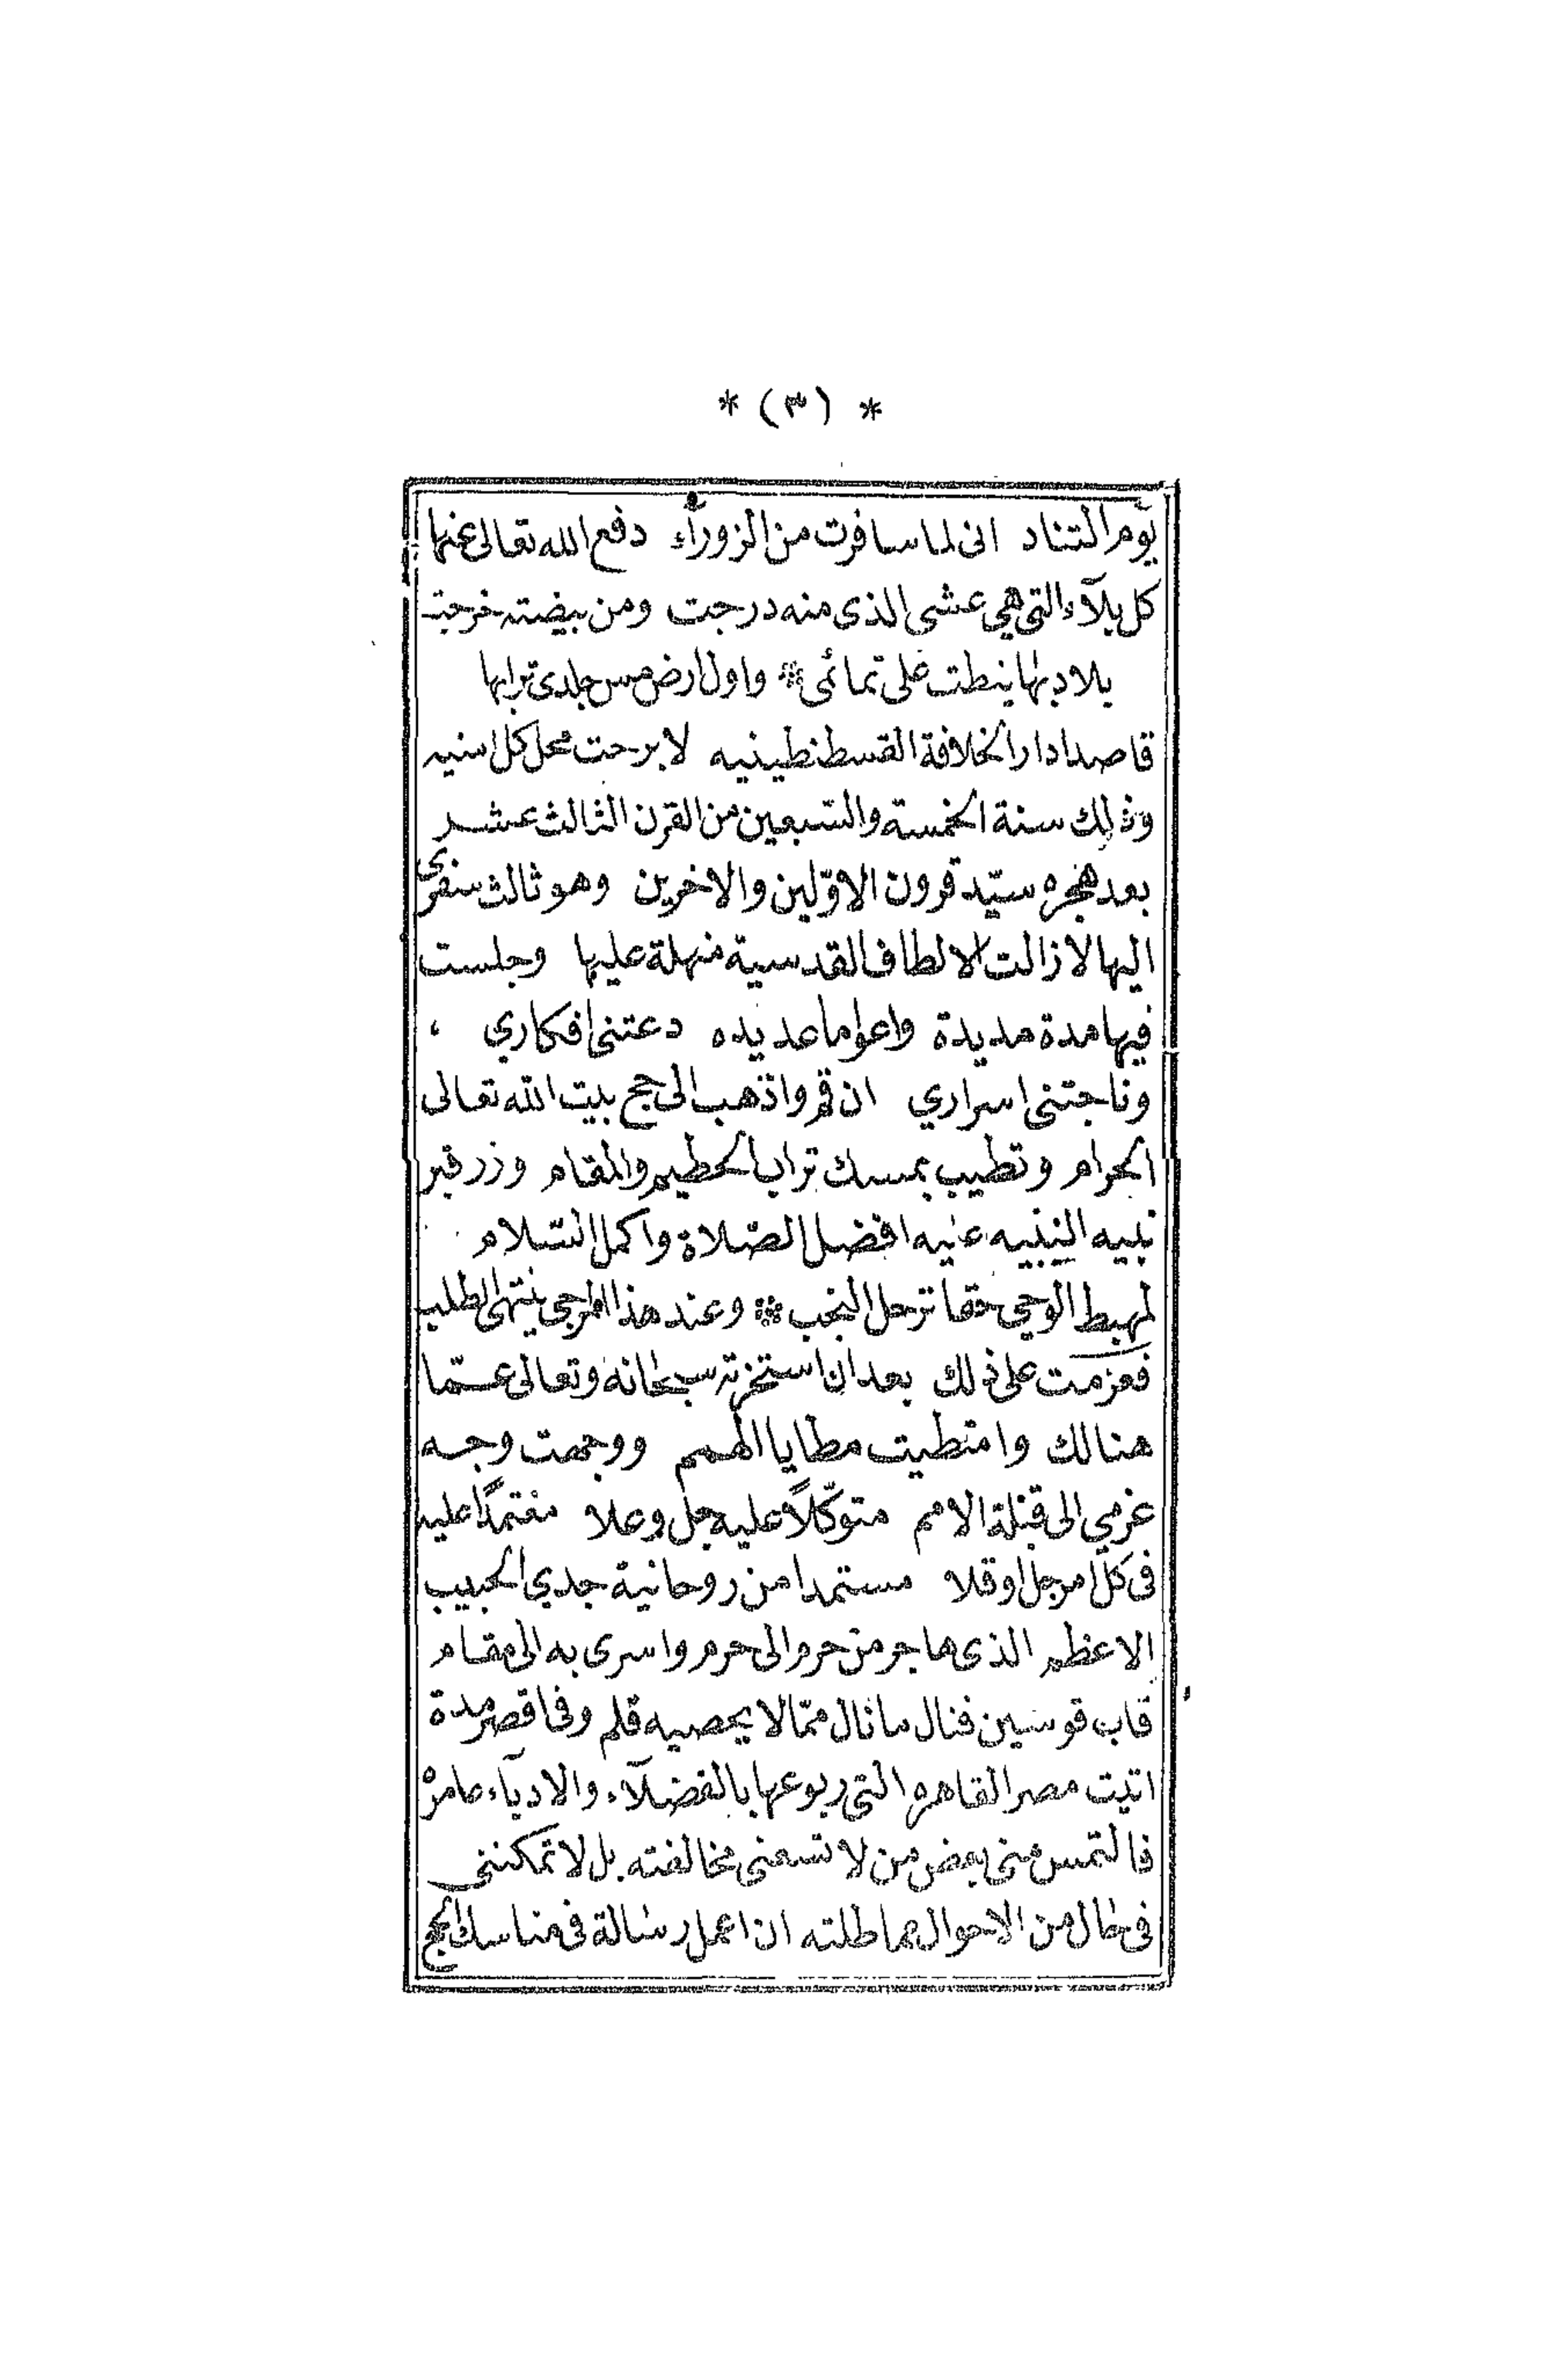 * (٣) *
يوم التناد انى لما سافرت من الزورآء دفع الله تعالى عنها
كل بلآء التى هي عشى الذى منه درجت ومن بيضته خرجت
بلاد بها نيطت على تمائمى ❊ واول ارض مس جلدى ترابها
قاصدا دار الخلافة القسطنطينيه لا برحت محل كل امنيه
وذلك سنة الخمسة والسبعين من القرن الثالث عشر
بعد هجره سيّد قرون الاوّلين والاخرين وهو ثالث سفرى
اليها لا زالت الالطاف القدسية منهلة عليها وجلست
فيها مدة مديدة واعواما عديده دعتنى افكاري ،
وناجتنى اسراري ان قم واذهب الى حج بيت الله تعالى
الحرام وتطيب بمسك تراب الحطيم والمقام وزر قبر
نبيه النبيه عليه افضل الصّلاة واكمل السّلام
لمهبط الوحي حقا ترحل النجب ❊ وعند هذا المرجى ينتهى الطلب
فعزمت على ذلك بعد ان استخرته سبحانه وتعالى عمّا
هنالك وامتطيت مطايا الهمم ووجهت وجه
عزمي الى قبلة الامم متوكّلاً عليه جل وعلا معتمدًا عليه
فى كل امر جل او قلا مستمدا من روحانية جدي الحبيب
الاعظم الذى هاجر من حرم الى حرم واسرى به الى مقام
قاب قوسين فنال ما نال ممّا لا يحصيه قلم وفى اقصر مدة
اتيت مصر القاهره التى ربوعها بالفضلآء والادبآء عامره
فالتمس منى بعض من لا تسعنى مخالفته بل لا تمكننى
فى حال من الاحوال مماطلته ان اعمل رسالة فى مناسك الحج